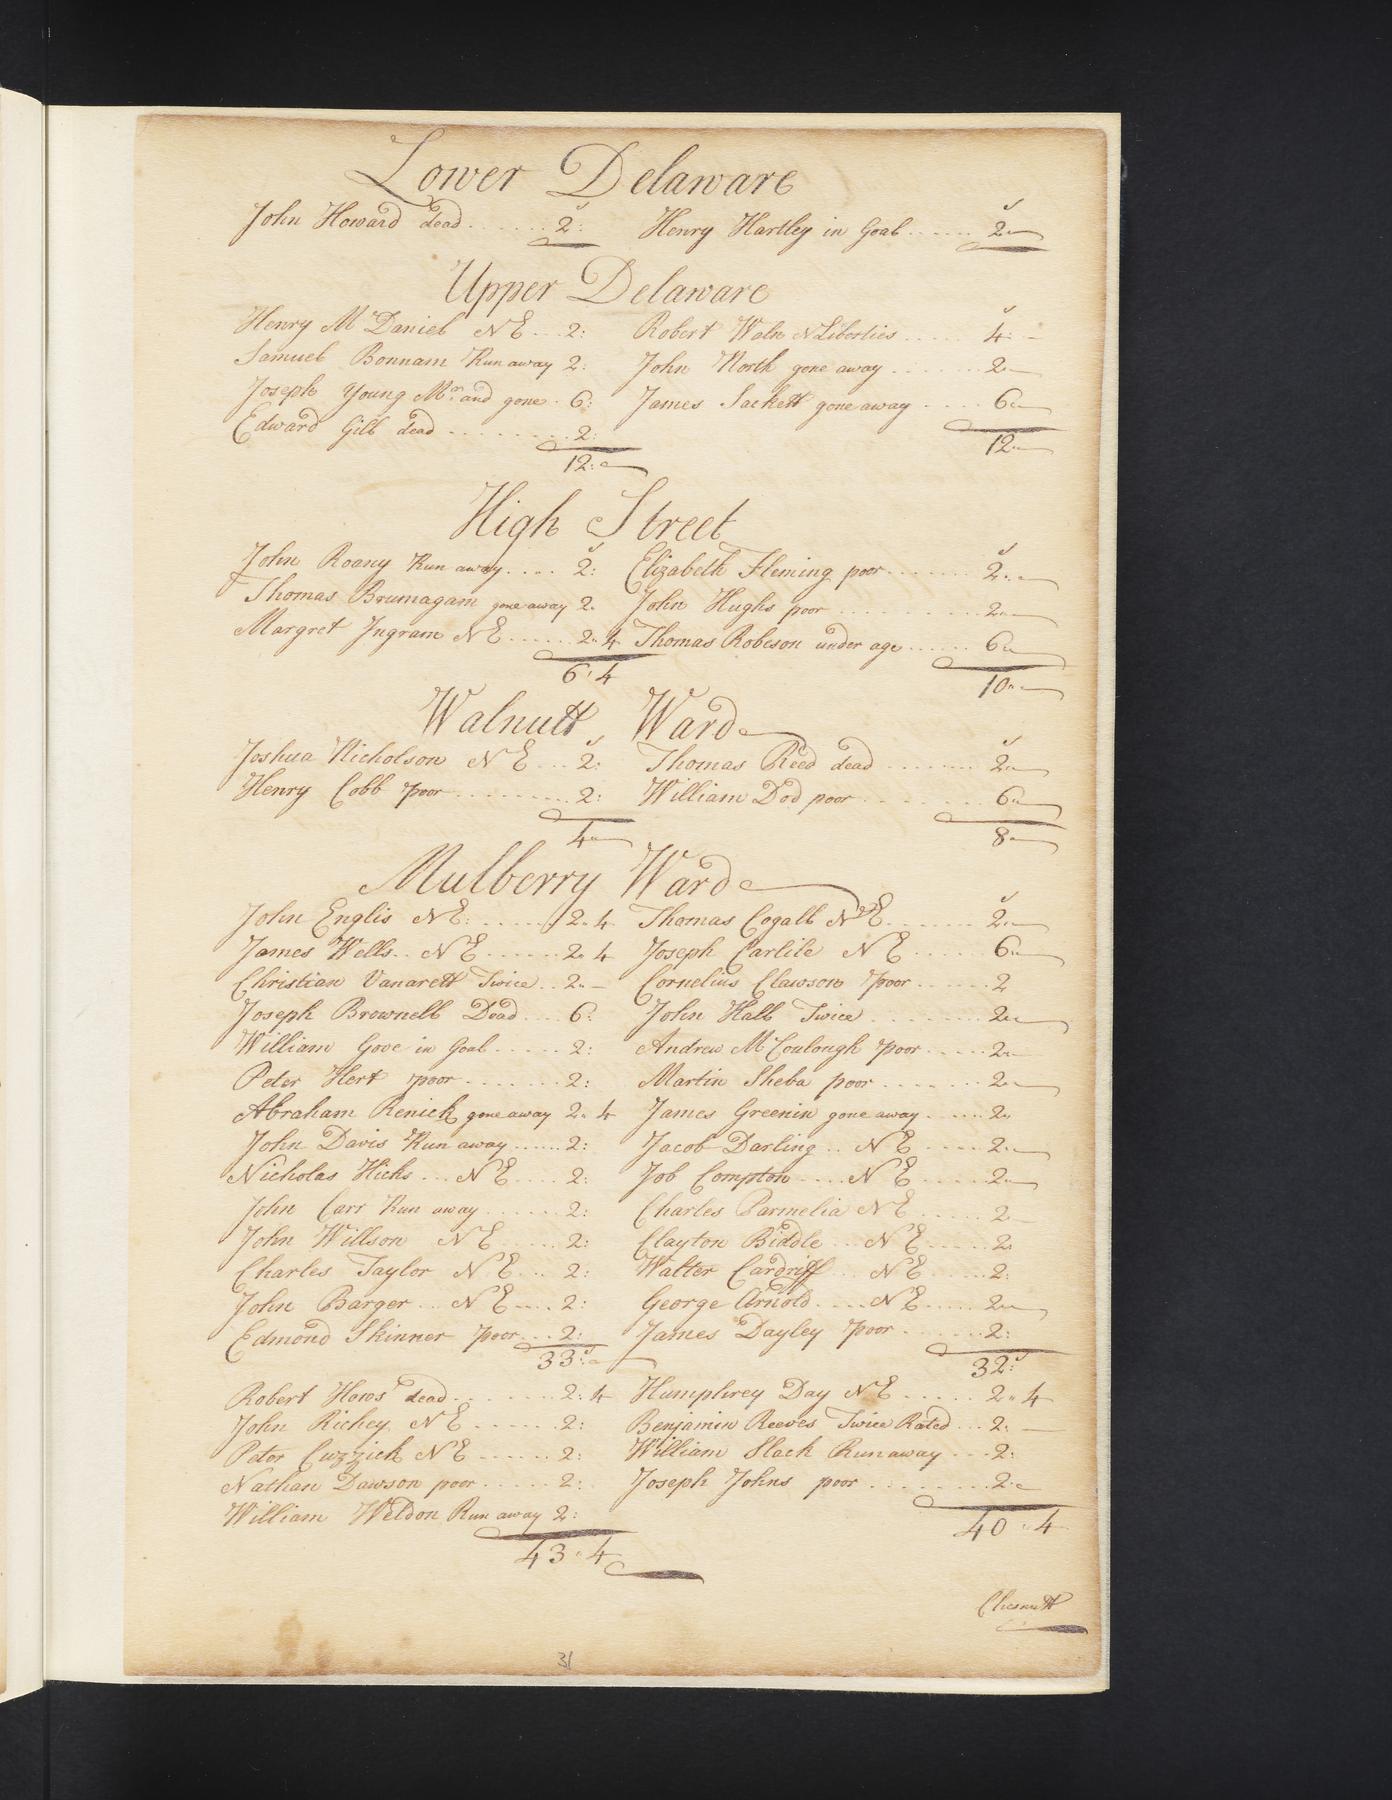 Lower Delaware
John Howard dead ....... 2: Henry Hartley in Goal ...... 2"
Upper Delaware
Henry McDaniel NE ... 2: Robert Waln N Liberties ..... 4:
Samuel Bonnam Run away 2: John North gone away ....... 2"
Joseph Young Mrn and gone . 6: James Sackett gone away .... 6"
Edward Gill dead ........ 2:
12: 12"
High Street
John Roany Run away .... 2: Elizabeth Fleming poor ....... 2"
Thomas Brumagam gone away 2" John Hughs poor .......... 2"
Margret Ingram NE ..... 2"4 Thomas Robeson under age ...... 6"
6"4 10"
Walnutt Ward
Joshua Nicholson NE ... 2: Thomas Reed dead ....... 2"
Henry Cobb poor ......... 2: William Dod poor ......... 6"
4" 8"
Mulberry Ward
John Englis NE ...... 2"4 Thomas Cogall NE ....... 2"
James Wells .. NE ...... 2"4 Joseph Carlile NE ...... 6"
Christian Vanarett Twice .. 2" Cornelius Clawson poor ...... 2
Joseph Brownell Dead .... 6: John Hall Twice ......... 2"
William Gove in Goal ..... 2: Andrew McCoulough poor ..... 2"
Peter Hert poor ....... 2: Martin Sheba poor ....... 2"
Abraham Renick gone away 2"4 James Greenin gone away ..... 2"
John Davis Run away ..... 2: Jacob Darling .. NE .... 2"
Nicholas Hicks ... NE .... 2: Job Compton .... NE ..... 2"
John Carr Run away ...... 2: Charles Parmelia NE ..... 2
John Willson NE ..... 2: Clayton Biddle ... NE ..... 2"
Charles Taylor NE ... 2: Walter Cardriff ... NE ..... 2:
John Barger ... NE .... 2: George Arnold .... NE ..... 2"
Edmond Skinner poor ... 2: James Dayley poor ....... 2:
33: 32:
Robert Hows dead ........ 2:4 Humphrey Day NE ..... 2"4
John Richey NE ...... 2: Benjamin Reeves Twice Rated ... 2:
Peter Cuzzick NE ...... 2: William Slack Run away ... 2:
Nathan Dawson poor ..... 2: Joseph Johns poor ........ 2"
William Weldon Run away 2:
43"4 40"4
Chesnutt
31